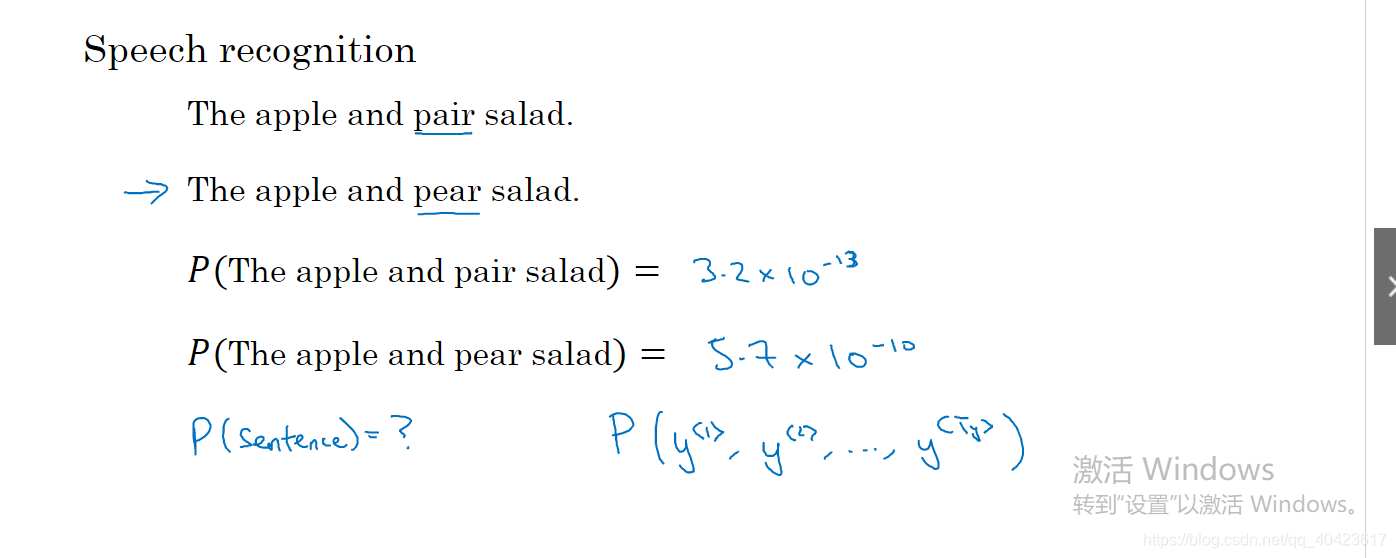 Speech recognition
The apple and pair salad.
→ The apple and pear salad.
P(The apple and pair salad) = 3.2 × 10⁻¹³
P(The apple and pear salad) = 5.7 × 10⁻¹⁰
P(sentence) = ? P(y<1>, y<2>, ..., y<Ty>)
激活 Windows
转到"设置"以激活 Windows。
https://blog.csdn.net/qq_40423617